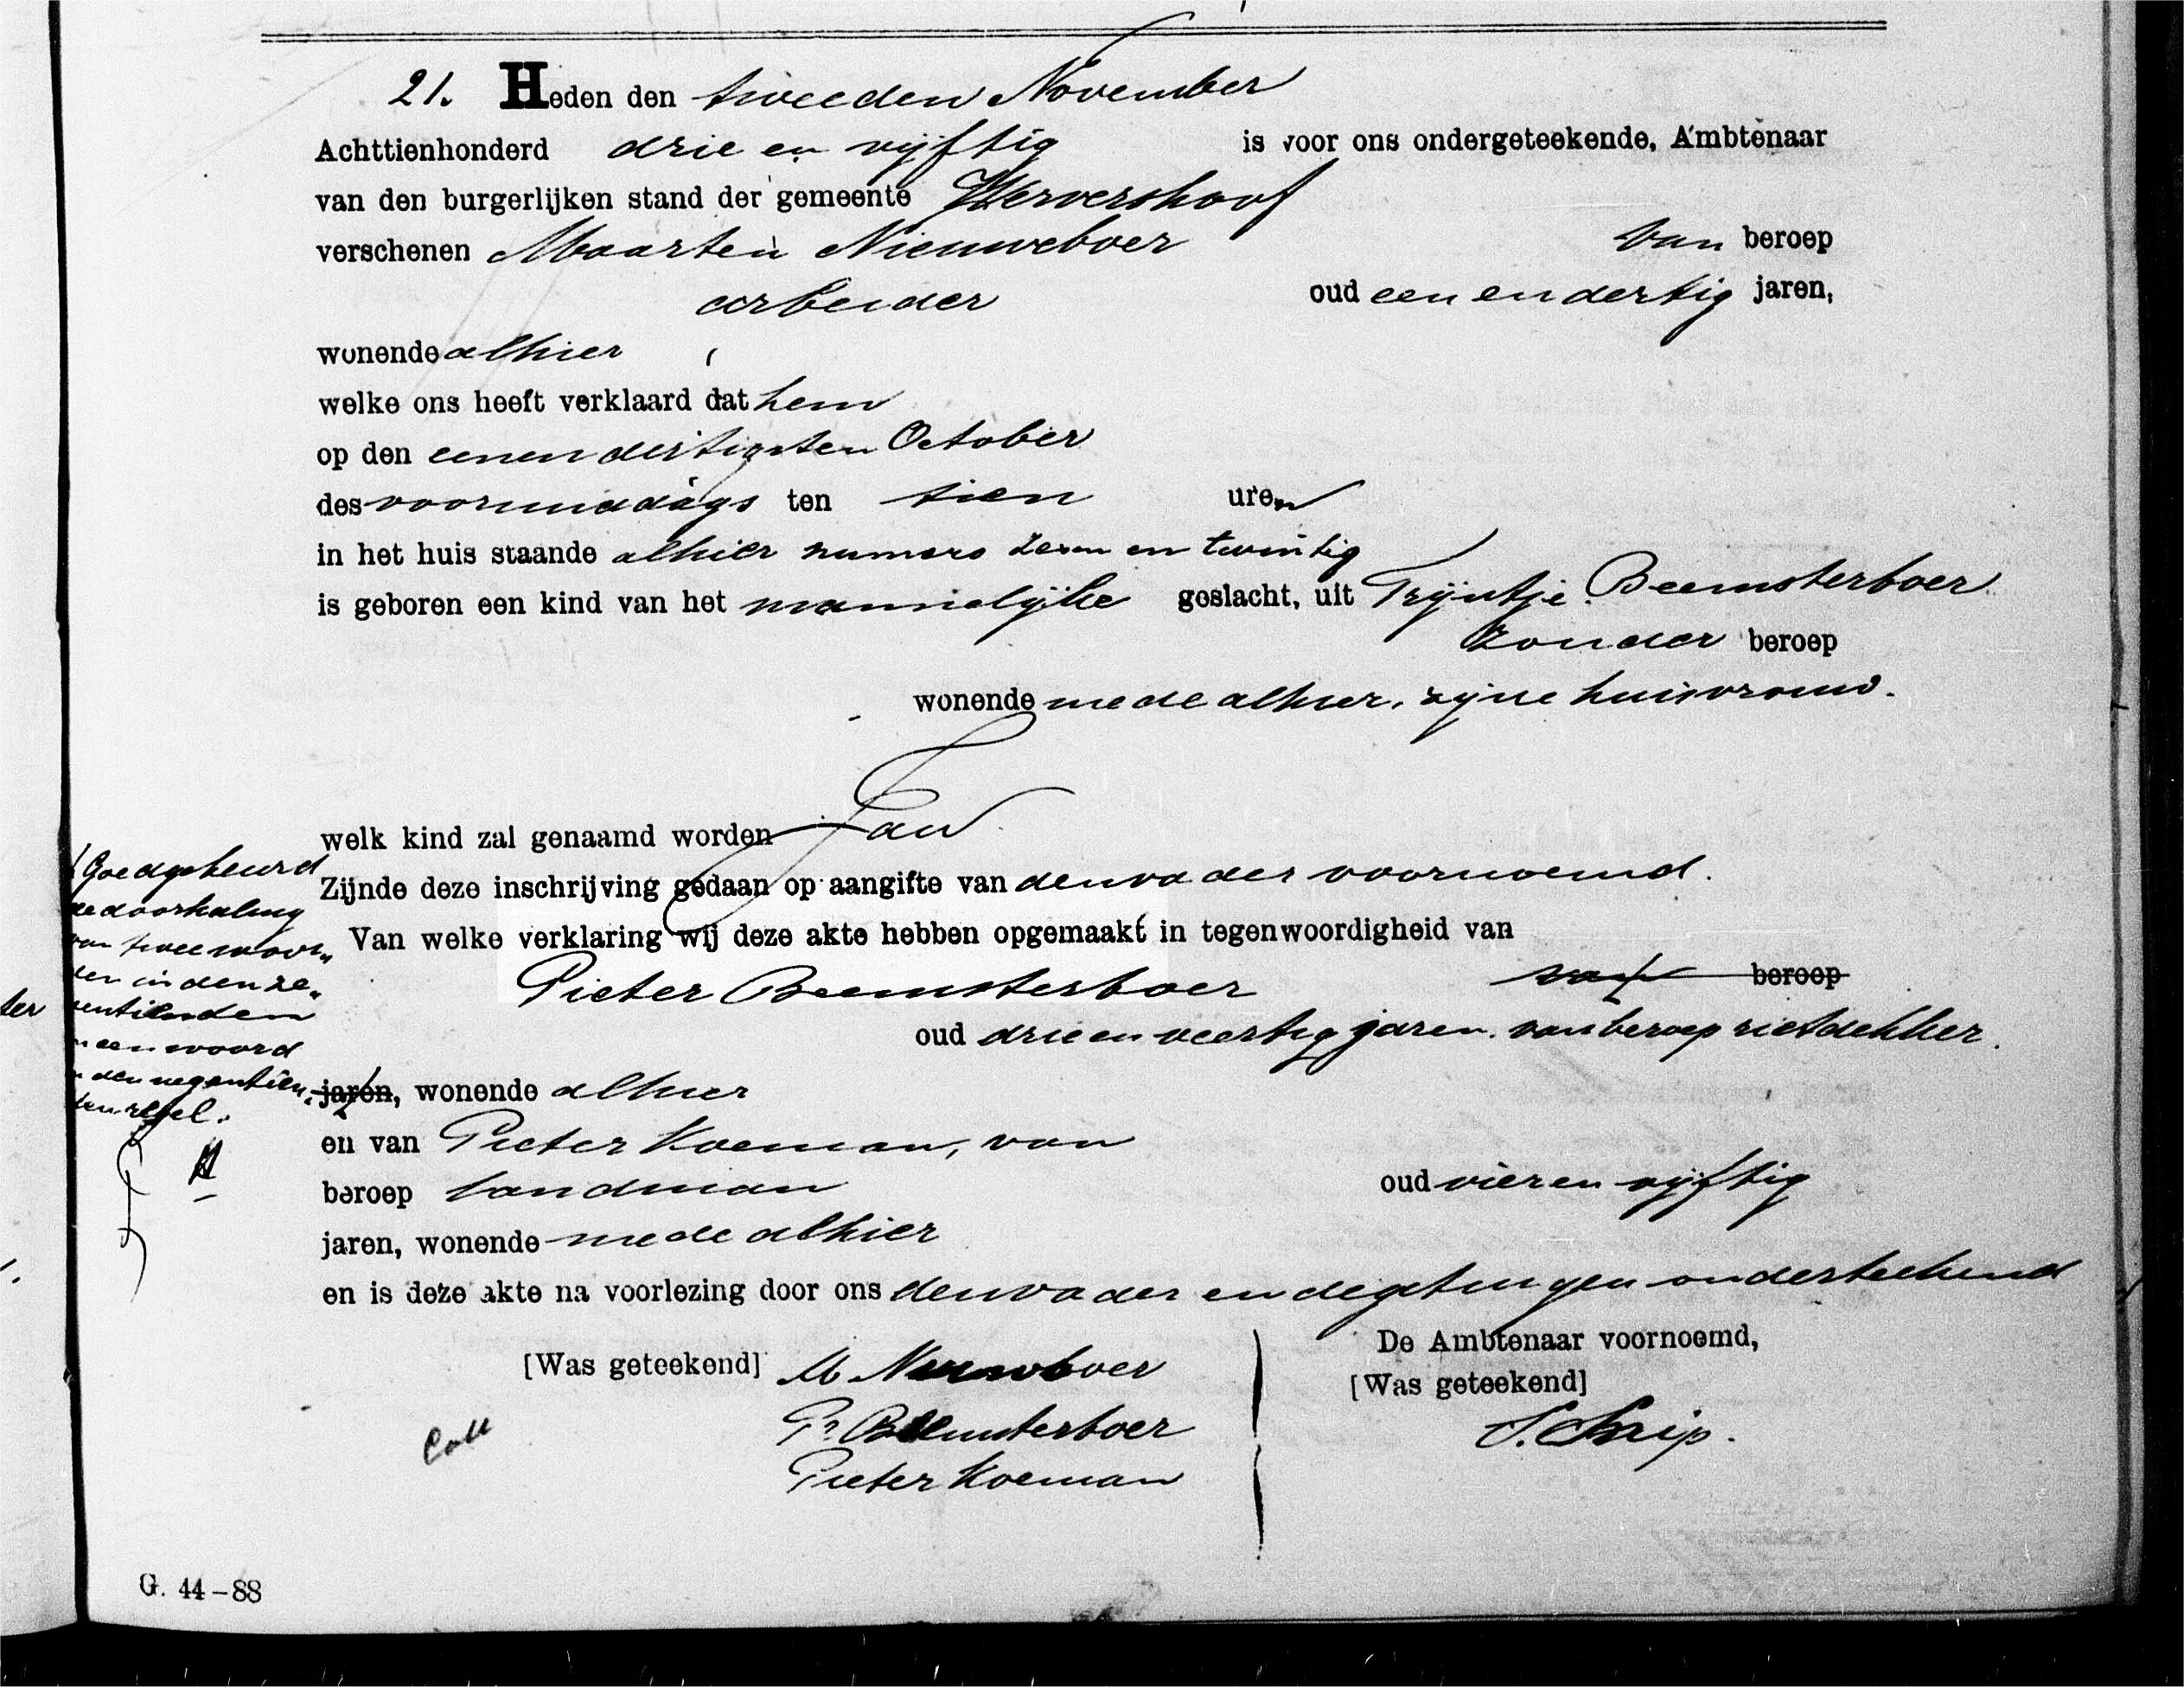 21. Heden den tweeden November
Achttienhonderd drie en vijftig is voor ons ondergeteekende, Ambtenaar
van den burgerlijken stand der gemeente Wervershoof
verschenen Maarten Nieuweboer van beroep
arbeider oud een en dertig jaren,
wonende alhier
welke ons heeft verklaard dat hem
op den eenen dertigsten October
des voormiddags ten tien uren
in het huis staande alhier numero zeven en twintig
is geboren een kind van het mannelijke geslacht, uit Trijntje Beemsterboer
zonder beroep
wonende mede alhier, zijne huisvrouw.
welk kind zal genaamd worden Jan
Zijnde deze inschrijving gedaan op aangifte van den vader voornoemd.
Van welke verklaring wij deze akte hebben opgemaakt in tegenwoordigheid van
Pieter Beemsterboer van beroep
oud drie en veertig jaren. van beroep rietdekker.
jaren, wonende alhier
en van Pieter Koeman, van
beroep landman oud vier en vijftig
jaren, wonende mede alhier
en is deze akte na voorlezing door ons den vader en de getuigen onderteekend
De Ambtenaar voornoemd,
[Was geteekend] M Nieuweboer
[Was geteekend]
Pr Beemsterboer
S. Schrip.
Pieter Koeman
Coll
Goedgekeurd
de doorhaling
van twee woor„
den in den ze„
ventienden
en een woord
in den negentien„
den regel.
ter
G. 44-88